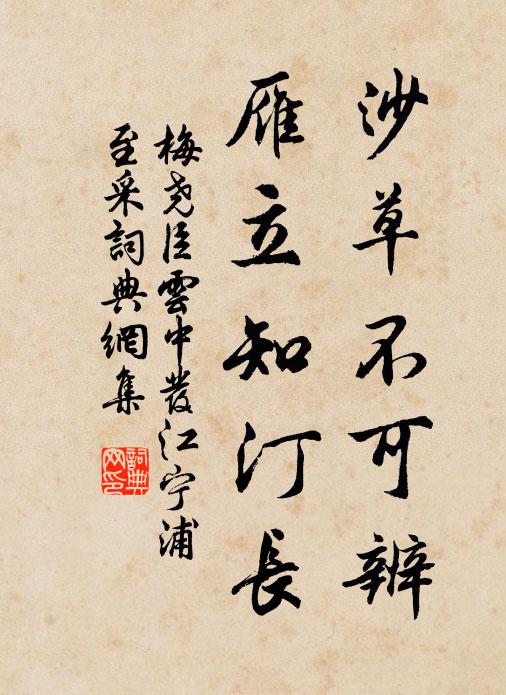 沙草不可辨
雁立知汀長
梅尧臣雲中發江宁浦
至采詞典網集
詞典
网印